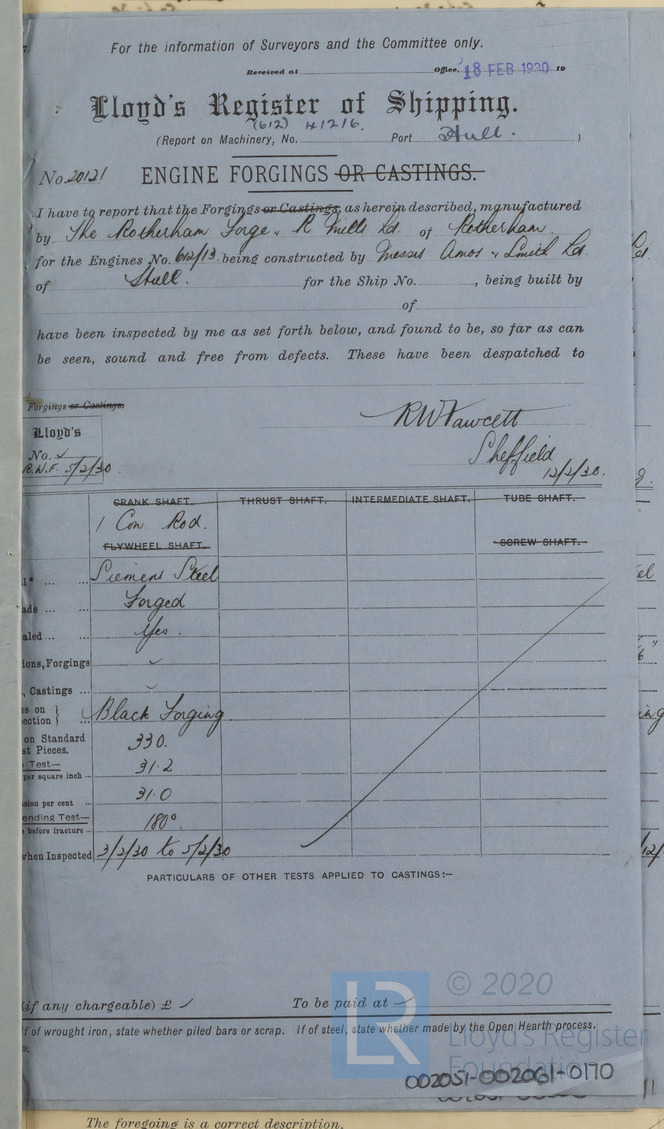 For the information of Surveyors and the Committee only.
Received at Office, 18 FEB 1930 19
Lloyd's Register of Shipping.
(612) 41216.
(Report on Machinery, No. Port Hull. )
No. 20121 ENGINE FORGINGS OR CASTINGS.
I have to report that the Forgings or Castings, as herein described, manufactured
by The Rotherham Forge & R Mills Ld. of Rotherham
for the Engines No. 612/13 being constructed by Messrs Amos & Smith Ld.
of Hull. for the Ship No. , being built by
of
have been inspected by me as set forth below, and found to be, so far as can
be seen, sound and free from defects. These have been despatched to
Forgings or Castings.
Lloyd's
No. ✓
R.W.F. 5/2/30
RW Fawcett
Sheffield
12/2/30.
CRANK SHAFT. THRUST SHAFT. INTERMEDIATE SHAFT. TUBE SHAFT.
1 Con Rod.
FLYWHEEL SHAFT. SCREW SHAFT.
Siemens Steel
ade ... Forged
aled ... ... Yes.
ions, Forgings ✓
, Castings ... ✓
s on
ection } ... Black Forging
on Standard
st Pieces. 330.
Test—
per square inch ... 31.2
sion per cent ... 31.0
ending Test—
before fracture ... 180°
when Inspected 3/2/30 to 5/2/30
PARTICULARS OF OTHER TESTS APPLIED TO CASTINGS:—
(if any chargeable) £ ✓ To be paid at ✓
If of wrought iron, state whether piled bars or scrap. If of steel, state whether made by the Open Hearth process.
LR
© 2020
Lloyd's Register
Foundation
002051-002061-0170
The foregoing is a correct description.